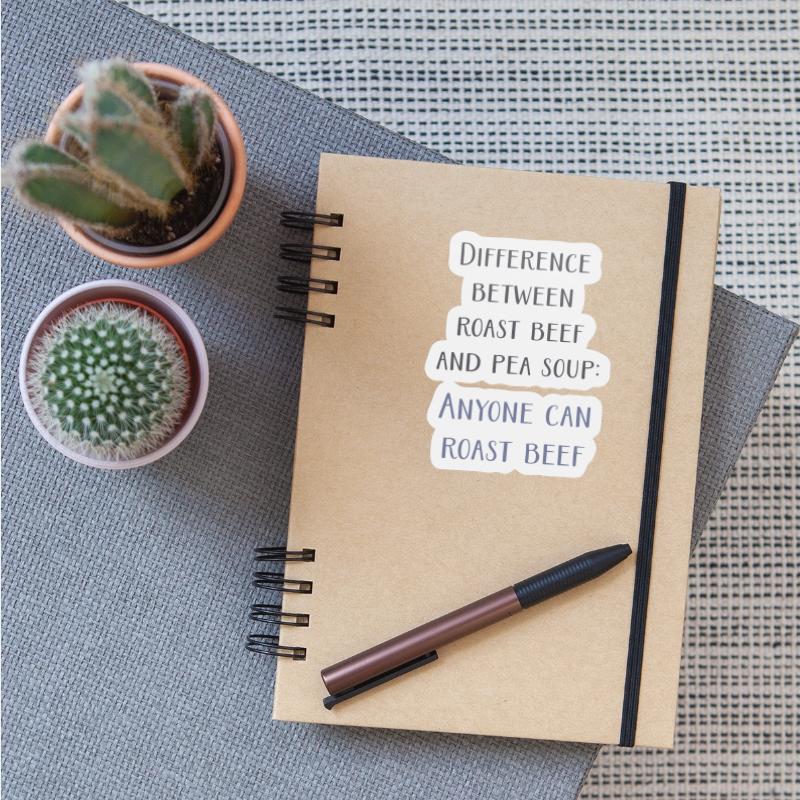 DIFFERENCE
BETWEEN
ROAST BEEF
AND PEA SOUP:
ANYONE CAN
ROAST BEEF